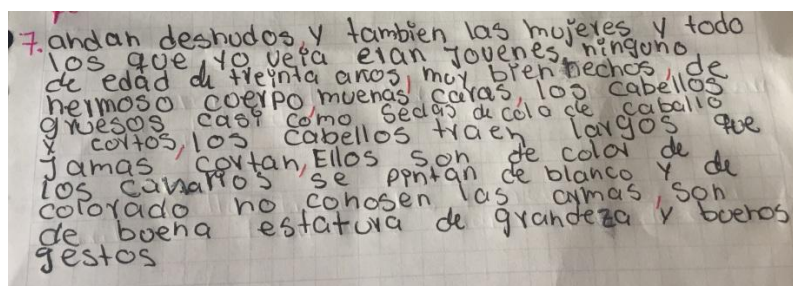 7. andan desnudos, y tambien las mujeres y todo
los que yo veía eran Jovenes, ninguno
de edad de treinta anos, muy bien hechos, de
hermoso coerpo, muenas caras, los cabellos
gruesos casi como sedas de cola de caballo
y cortos, los cabellos traen largos que
Jamas cortan, Ellos son de color de
los canarios se pintan de blanco y de
colorado no conosen las armas, son
de buena estatura de grandeza y buenos
gestos